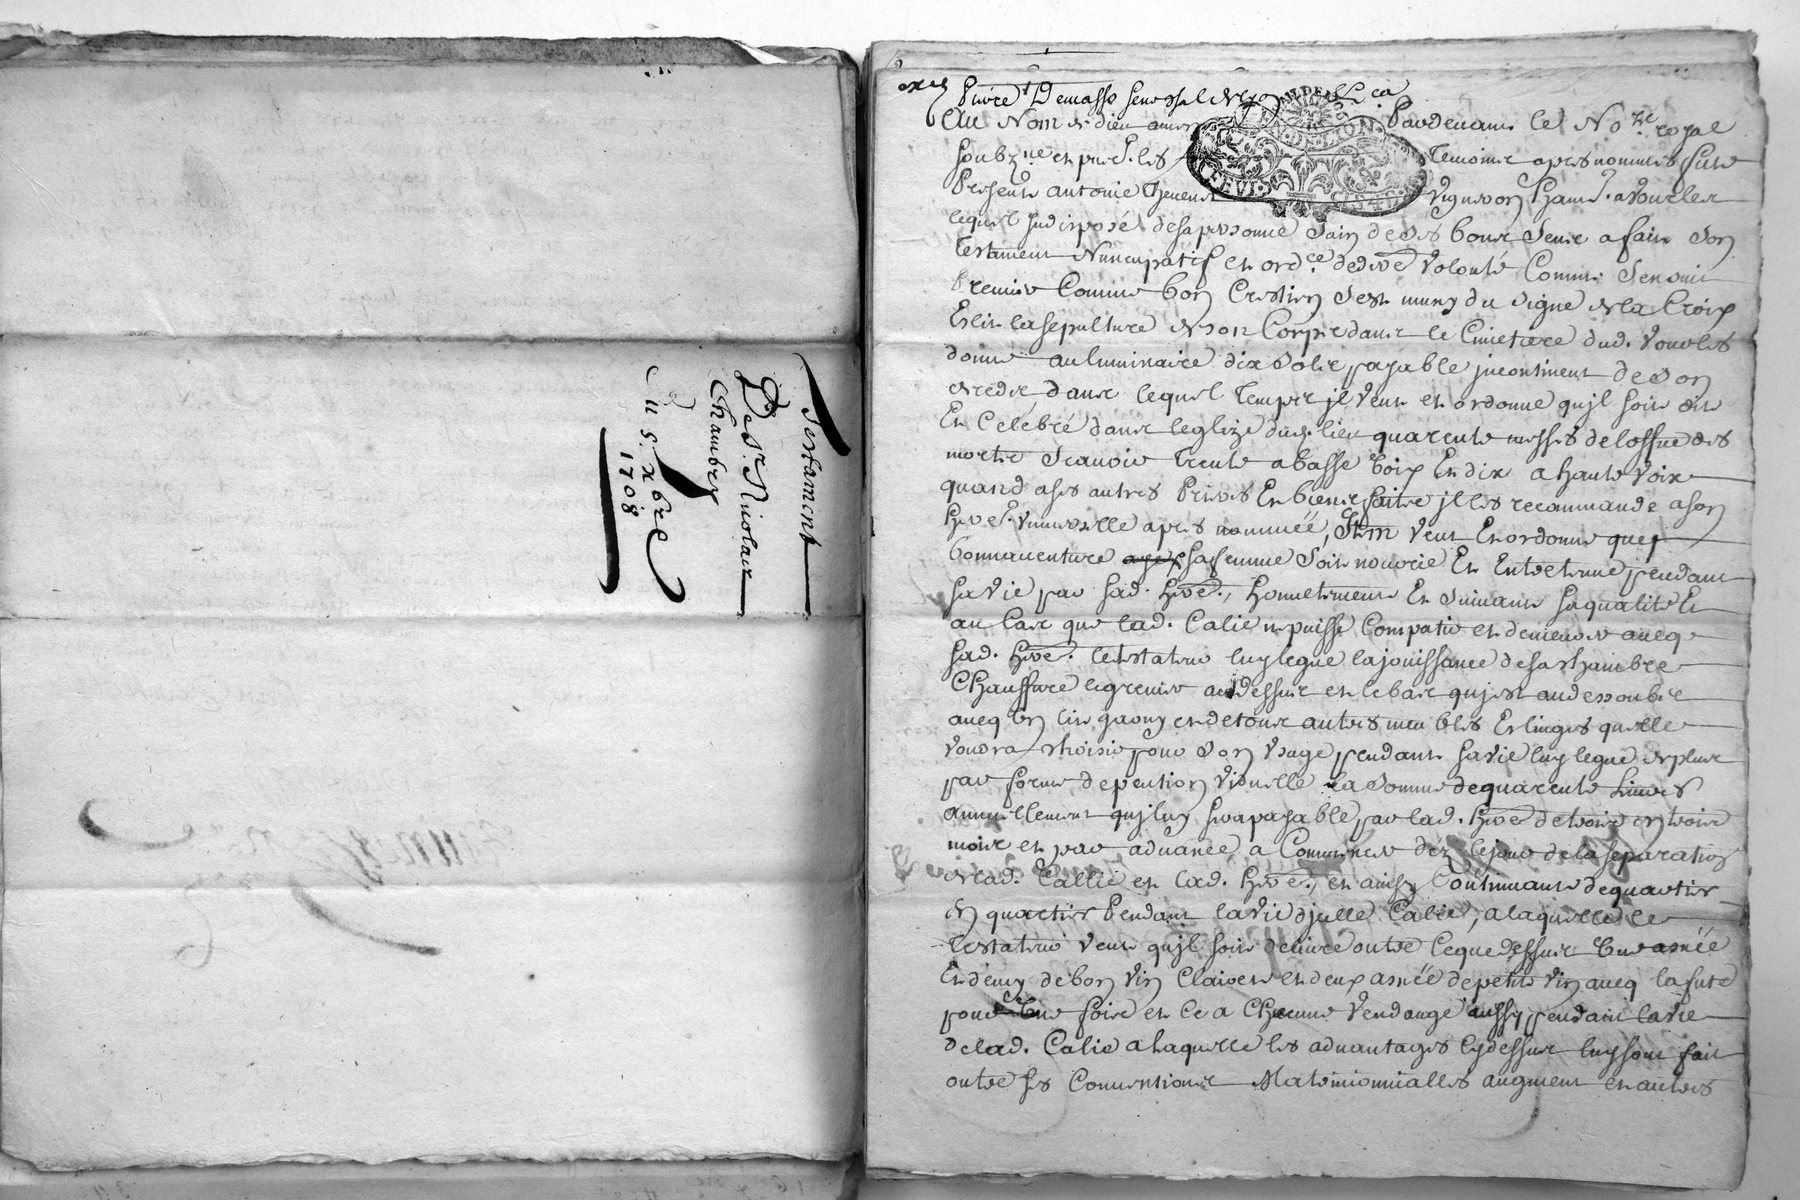 Testament
De Sr. Nicolas
Chambry
Du 5. xbre
1708
Au Nom de dieu amen Pardevant le No.re royal
soubz.ne et pres.t les Temoins apres nommés fute
Presente antoine Vigneron hant. a Vourles
lequel indisposé de sa personne sain de ses bons sens a fait son
Testament Nuncupatif et ord.ce de der.e Volonté Comme s'ensuit
Premier Comme bon Crestien s'est muny du signe de la Croix
Eslit la sepulture de son Corps dans le Cimetiere dud. Vourles
donne au luminaire dix sols payable incontinent de son
deceds dans lequel temps il veut et ordonne qu'il soit dit
Et Celébré dans leglize dud. lieu quarente messes de loffice des
morts scavoir trente a basse voix Et dix a haute voix
quand a ses autres Prieres Et biens faits il les recommande a son
her.e Vniverselle apres nommée, Item veut Et ordonne que
bonnaventure sa femme soit nourrie Et Entretenue pendant
sa vie par sad. her.e, honnetement Et suivant sa qualité Et
au Cas que lad. Calie ne puisse Compatir et demeurer avecq
sad. her.e le testateur luy legue la jouissance de sa chambre
Chauffure le grenier au dessus et le bas qui est au dessoubs
avecq un lit garny et de tous autres meubles Et linges quelle
voudra choisir pour son Vsage pendant sa vie luy legue de plus
par forme de pention viduelle la somme de quarente Livres
annuellement qui luy sera payable par lad. her.e de trois en trois
mois et par advance a Commencer dez le jour de la separation
de lad. Callie et lad. her.e, et ainsy Continuant de quartier
en quartier Pendant la vie d'jcelle Calie, a laquelle le
testateur veut qu'il soit delivré outre ce que dessus Une asnée
Et demy de bon vin Clairet et deux asnée de petit vin avecq la fute
pour Une fois et ce a Chacune Vendange aussy pendant la vie
de lad. Calie a laquelle les advantages cydessus luy sont fait
outre ses Conventions Matrimonialles augment et autres